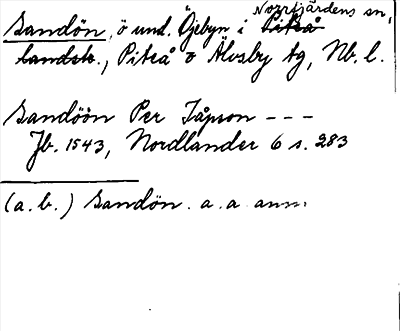 Sandön, ö und. Öjebyn i Norrfjärdens sn,
landsk., Piteå o Älvsby tg, Nb. l.
Sandöön Per Jåpson - - -
Jb. 1543, Nordlander 6 s. 283
(a. b.) Sandön. a. a. anm.